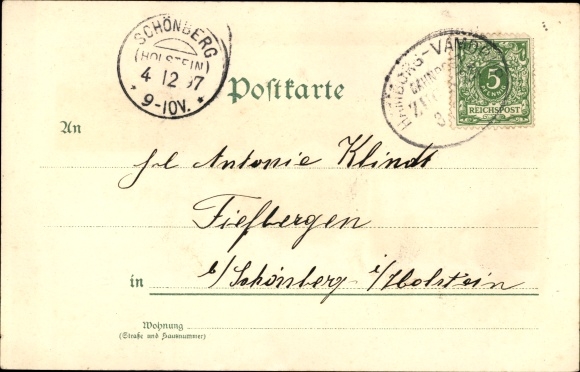 SCHÖNBERG
(HOLSTEIN)
4 12 97
9-10V.
HAMBURG-VAND
BAHNPOST
5
PFENNIG
REICHSPOST
Postkarte
An
Frl Antonie Klindt
Fiefbergen
in b/Schönberg i/Holstein
Wohnung
(Straße und Hausnummer)